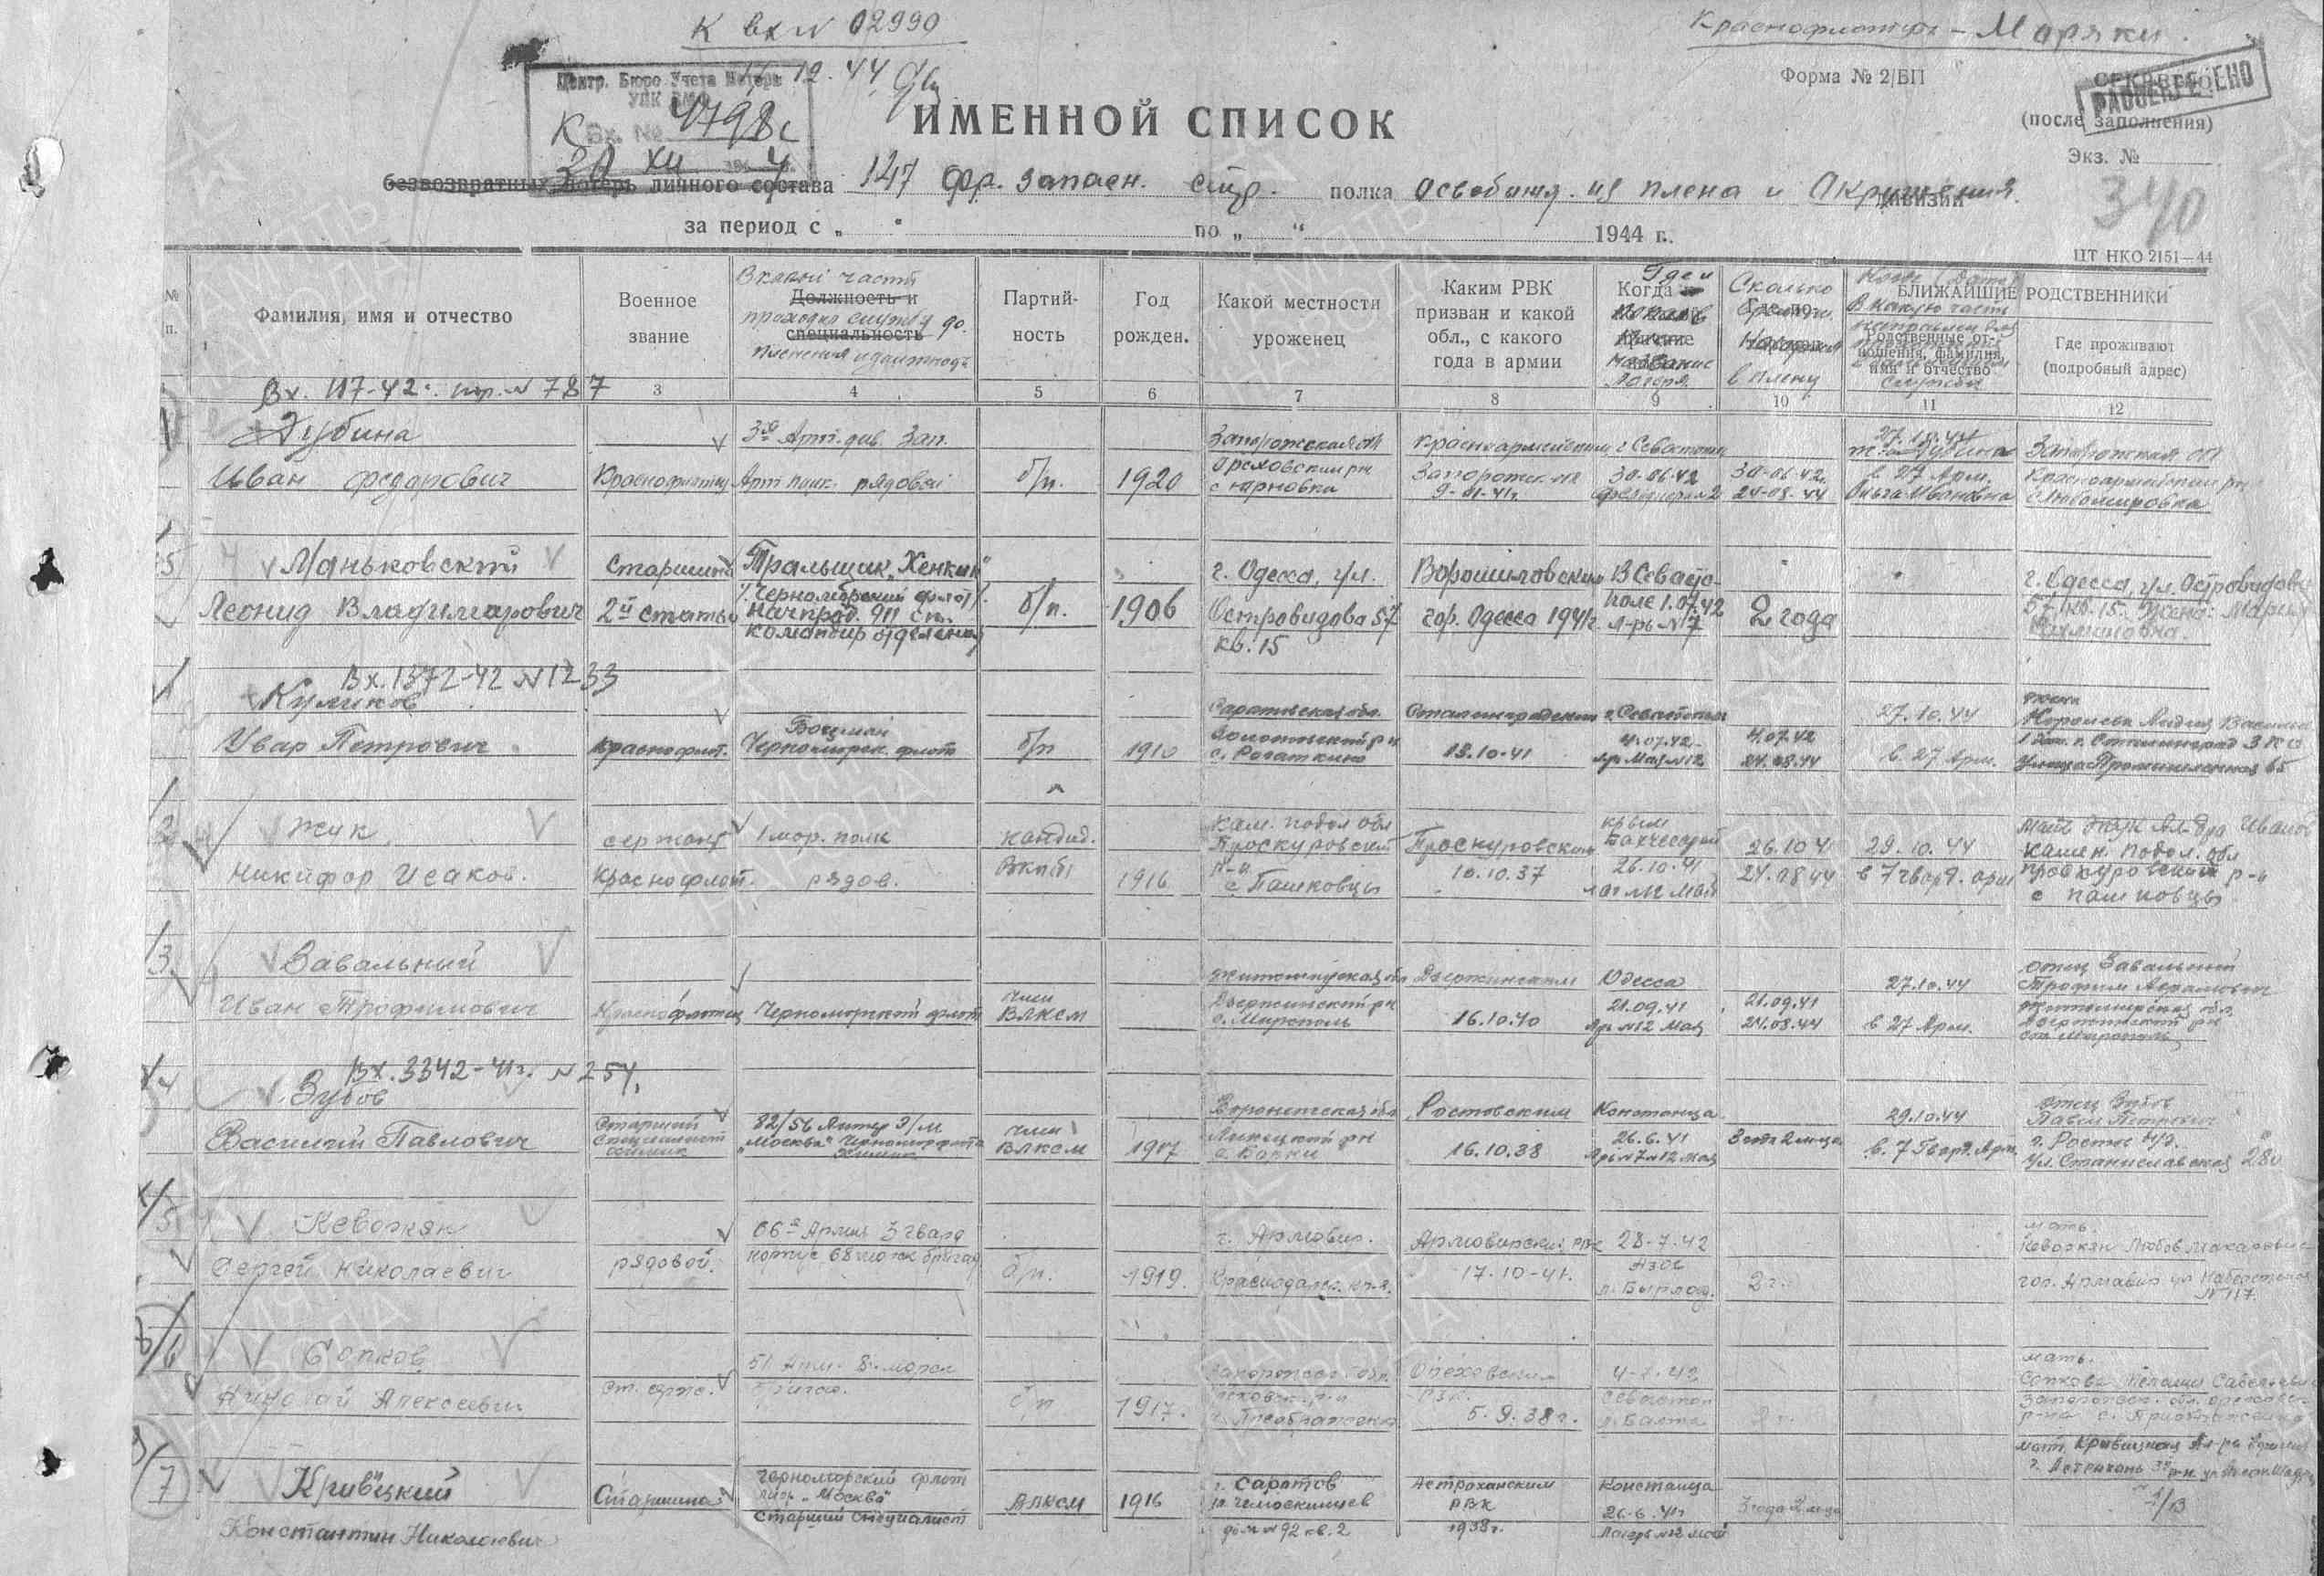 К вх N 02990
Краснофлотцы - Моряки.
12.44
Центр. Бюро Учета Потерь
К Вх. № 4798с
30 XII 4
Форма № 2/БП
СЕКРЕТНО
РАССЕКРЕЧЕНО
(после заполнения)
Экз. №
ИМЕННОЙ СПИСОК
340
безвозвратных потерь личного состава 147 фр. запасн. стр. полка освобожд. из плена и окружения. дивизии
за период с „ “ по „ “ 1944 г.
ЦТ НКО 2151—44
№ п.
Фамилия, имя и отчество
Военное звание
В какой части
Должность и
проходил службу до
специальность
пленения и должность
Партий-
ность
Год
рожден.
Какой местности
уроженец
Каким РВК
призван и какой
обл., с какого
года в армии
Где и
Когда
название
лагеря
Сколько
времени
в плену
БЛИЖАЙШИЕ РОДСТВЕННИКИ
в какую часть
направлен для
Родственные от-
ношения, фамилия,
имя и отчество
службы
Где проживают
(подробный адрес)
Вх. 117-42г. пор. N 787
3 4 5 6 7 8 9 10 11 12
Дубина
Иван Федорович
Краснофлотец
3й Арт. див. Зап.
Арт полк. рядовой
б/п.
1920
Запорожская обл
Ореховский рн
Красноармейским
Запорожск. обл
9-01-41г.
г Севастополь
30-06-42
30-06-42г.
24-08-44
27.10.44
в 27 Арм.
Ольга Ивановна
Запорожская обл
Красноармейский рн
с Любомировка
5
Маньковский
Леонид Владимирович
Старшина
2й статьи
Тральщик „Хенкин“
/Черноморский флот/.
Начпрод. 911 сп.
командир отделения
б/п.
1906
г. Одесса, ул.
Островидова 57
кв. 15
Ворошиловский
гор. Одесса 1941г
В Севасто-
поле 1.07.42
л-рь N 7
2 года
г. Одесса, ул. Островидова
57 кв. 15. Жена: Мария
Вх. 1372-42 N 1233
Куликов
Увар Петрович
краснофлот.
Боцман
Черноморск. флота
б/п
1910
Саратовская обл.
Сталинградским
13.10-41
г. Севастополь
4.07.42
4.07.42
24.08.44
27.10.44
в. 27 Арм.
жена
2
Жук
Никифор Исаков.
сержант
Краснофлот.
1 мор. полк
рядов.
кандид.
ВКП(б)
1916
Кам. подол обл
Проскуровский
р-н
с Пашковцы
Проскуровским
10.10.37
Крым
Бахчесарай
26.10.41
26.10 41
24.08 44
29.10.44
в 7 гвард. арм
Мать Жук Ал-дра Иванов
Камен. подол. обл
Проскуровский р-н
с Пашковцы
3.
Завальный
Иван Трофимович
Краснофлотец
Черноморский флот
член
ВЛКСМ
Житомирская обл
Дзержинский рн
с. Мирополь
Дзержинским
16.10.40
Одесса
21.09.41
лрь N12 Мая
21.09.41
24.08.44
27.10.44
в 27 Арм.
отец Завальный
Трофим Абрамович
Житомирская обл.
Дзержинский рн
ст. Мирополь
4
Вх. 3342-41г. N 254.
Зубов
Василий Павлович
Старший
Специалист
химик
82/56 Литер Э/М
„Москва“ Черноморфлота
Химик
член
ВЛКСМ
1917
Воронежская обл
Липецкий рн
с. Борки
Ростовским
16.10.38
Констанца
26.6.41
3 года 2 м-ца
29.10.44
в. 7 Гвард. Арм.
отец Зубов
Павел Петрович
г. Ростов н/д.
ул. Станиславская 280
5
Кеворкян
Сергей Николаевич
рядовой.
66я Армия 3 гвард
корпус 68 морск бригад
б/п.
1919.
г. Армавир.
Краснодарск. кр-я.
Армавирский РВК
17.10-41.
28-7.42
Азов
л. Бырлад.
2 г.
мать.
Кеворкян Любовь Макаровна
гор. Армавир ул Набережная
N 117.
6
Сопков
Николай Алексеевич
ст. серж.
51 Арм. 8. морск
бригад.
б/п
1917.
Запорожск. обл.
Ореховск. р-н
с. Преображенка
Ореховский
РВК.
5.9.38 г.
4-7.42
Севастоп
2 г.
мать.
7
Кривицкий
Константин Николаевич
Старшина
Черноморский флот
лид. „Москва“
Старший специалист
ВЛКСМ
1916
г. Саратов
дом N 92 кв. 2
Астраханским
РВК
1938г.
Констанца
26-6.41г
Лагерь N12 Мая
3 года 2 м-ца